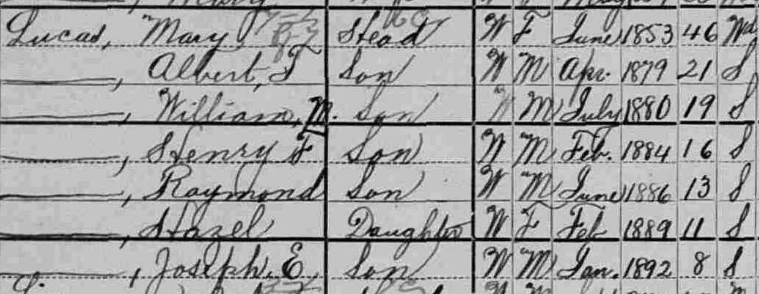 Lucas, Mary Head W F June 1853 46 Wd
——, Albert, F Son W M Apr. 1879 21 S
——, William, M. Son W M July 1880 19 S
——, Henry F Son W M Feb. 1884 16 S
——, Raymond Son W M June 1886 13 S
——, Hazel Daughter W F Feb 1889 11 S
——, Joseph. E, Son W M Jan. 1892 8 S